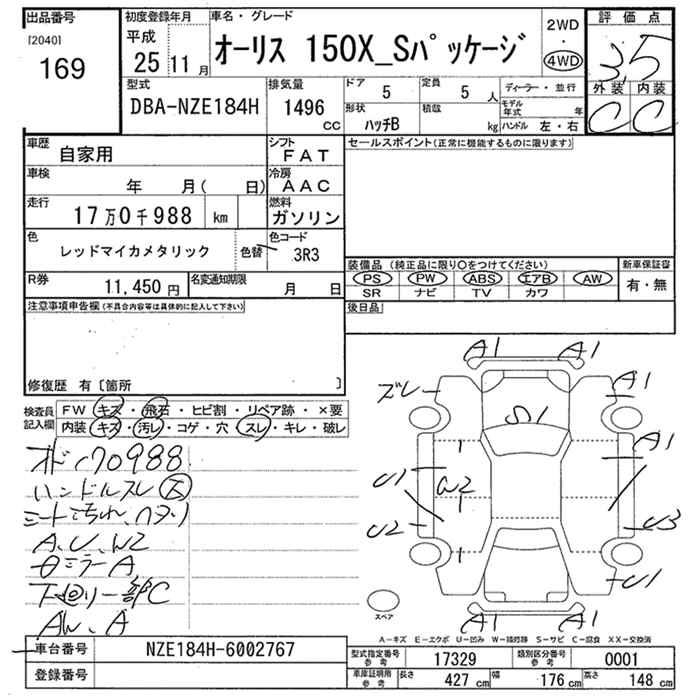 出品番号
[2040]
169
初度登録年月
平成
25 11 月
車名・グレード
オーリス 150X_Sパッケージ
2WD
・
4WD
評価点
3.5
外装 内装
C C
型式
DBA-NZE184H
排気量
1496
cc
ドア 5
定員 5 人
形状
ハッチB
積載
kg
ディーラー・並行
モデル年式 年
ハンドル 左・右
車歴
自家用
シフト
FAT
車検
年 月( 日)
冷房
AAC
走行
17万0千988 km
燃料
ガソリン
色
レッドマイカメタリック
色替
色コード
3R3
R券
11,450 円
名変通知期限
月 日
セールスポイント(正常に機能するものに限ります)
装備品 (純正品に限り○をつけてください)
PS PW ABS エアB AW
SR ナビ TV カワ
新車保証書
有・無
後日品
注意事項申告欄(不具合内容等は具体的に記入して下さい)
修復歴 有〔箇所 〕
検査員記入欄
FW キズ・飛石・ヒビ割・リペア跡・×要
内装 キズ・汚レ・コゲ・穴・スレ・キレ・破レ
170988
ハンドルスレ
A、U、W2
ミラーA
下廻り一部C
AW、A
A1 A1
ズレ
A1
S1
A1
U1
W2
U2
U3
U1
A1 A1
スペア
A-キズ E-エクボ U-凹み W-補修跡 S-サビ C-腐食 XX-交換済
車台番号
NZE184H-6002767
登録番号
型式指定番号
参考
17329
類別区分番号
参考
0001
車庫証明用
参考
長さ
427 cm
幅
176 cm
高さ
148 cm